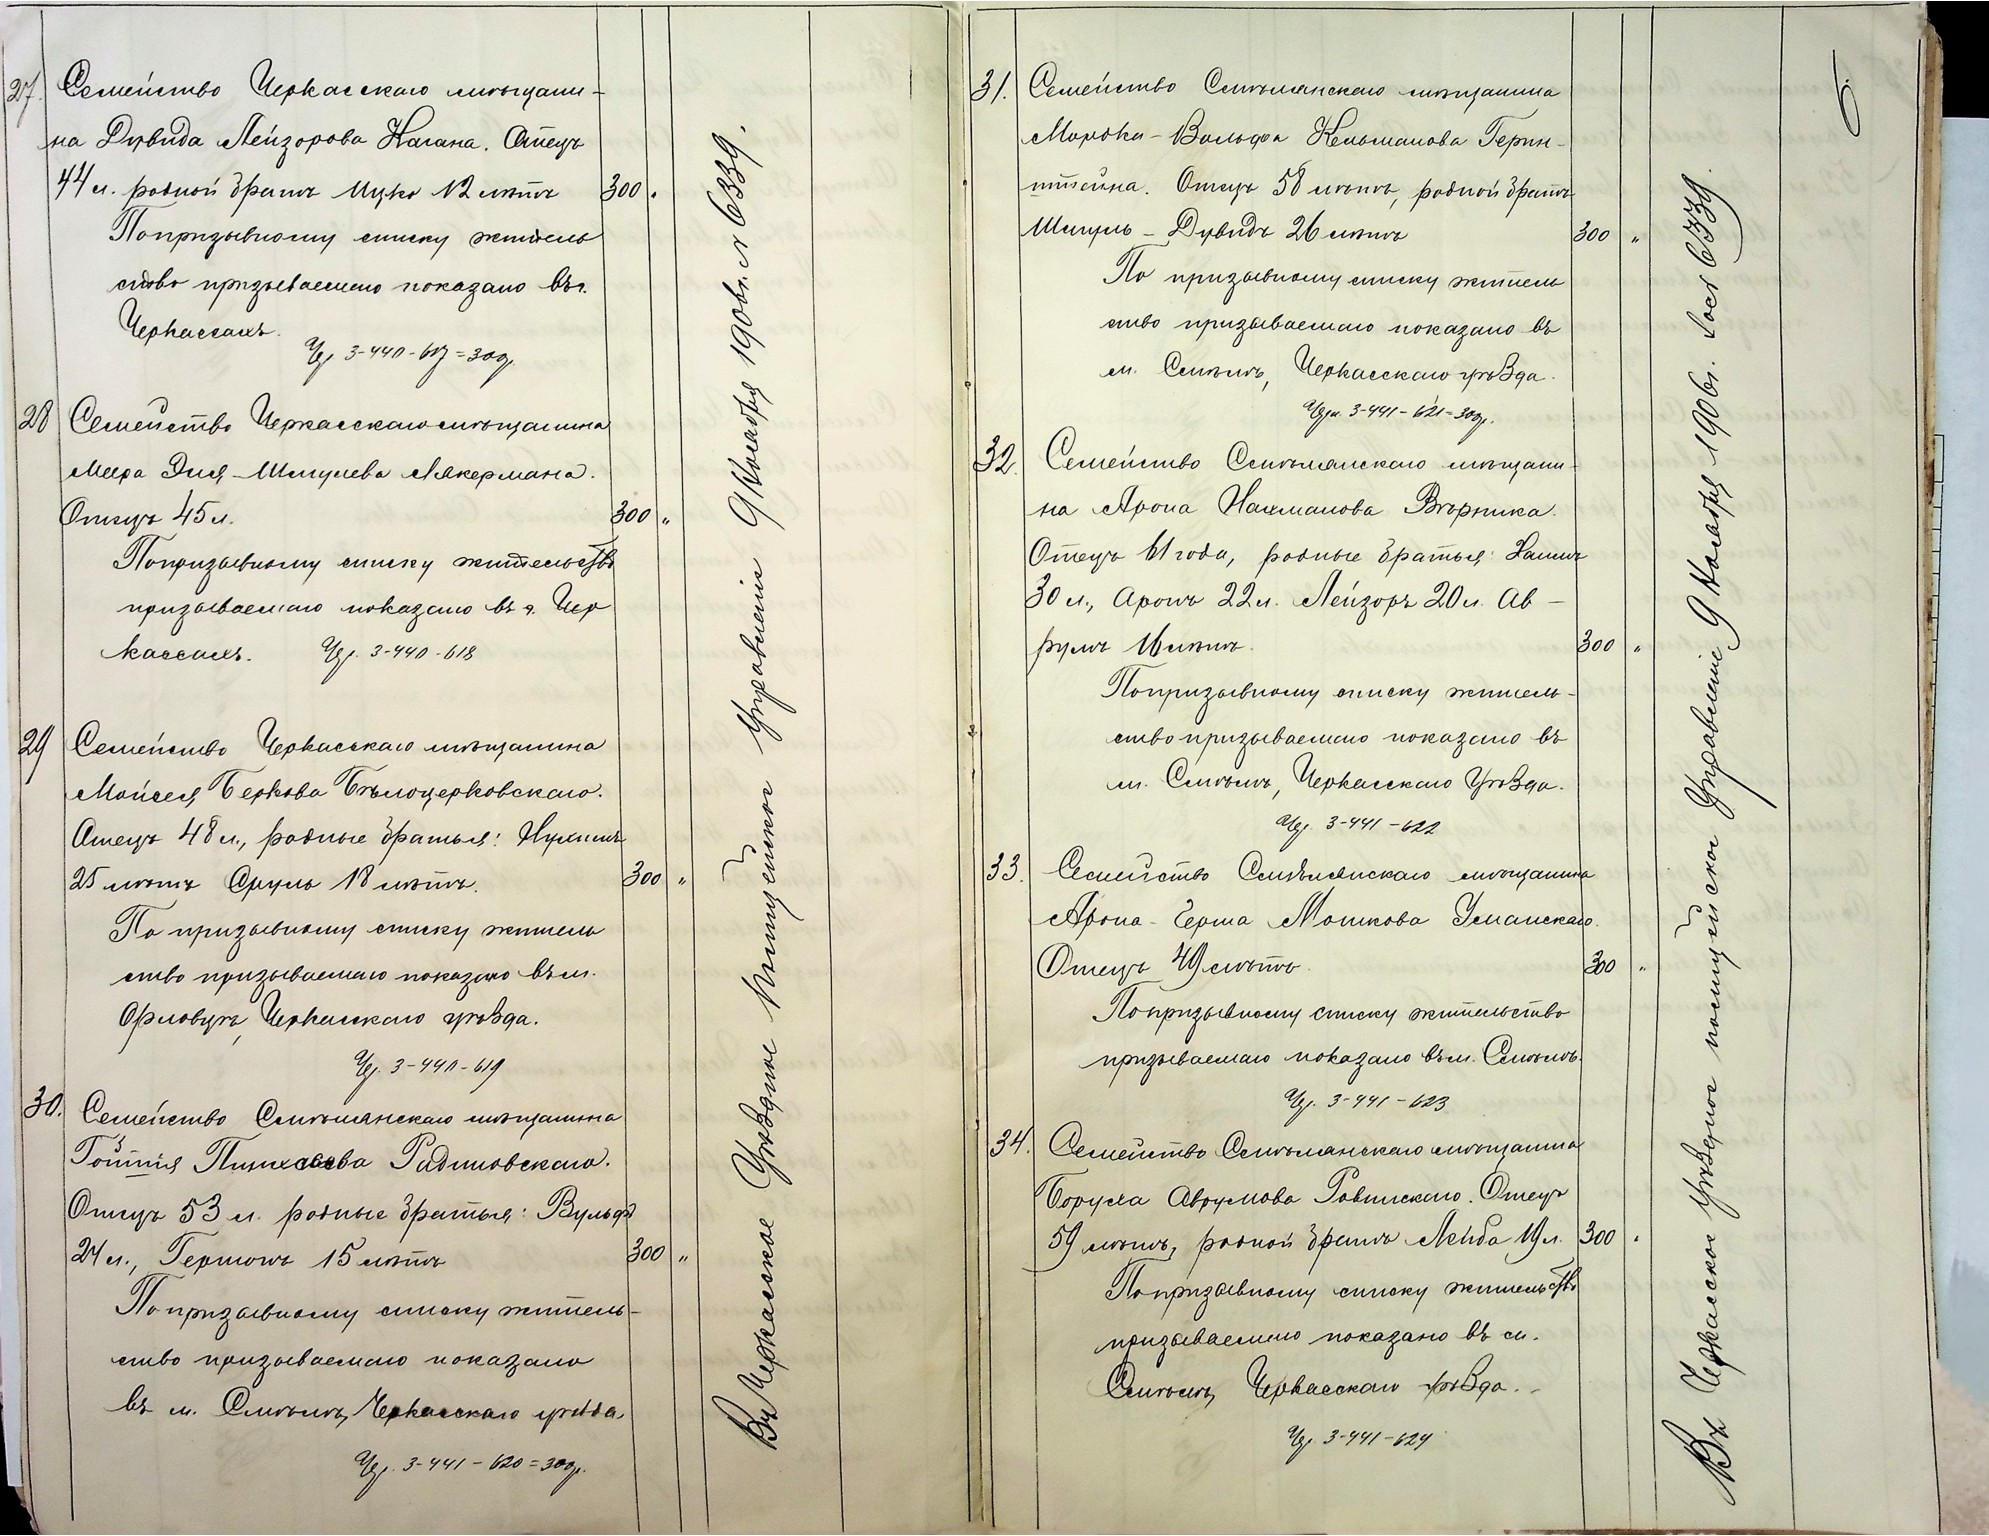 27. Семейство Черкасскаго мѣщани-
на Дувида Лейзорова Кагана. Отецъ
44 л. родной братъ Ицко 12 лѣтъ 300 "
По призывному списку житель
ство призываемаго показано въ г.
Черкассахъ.
Чер. 3-440-617=300р.
28 Семейство Черкасскаго мѣщанина
Меера Эля-Шмулева Акермана.
Отецъ 45 л. 300 "
По призывному списку жительство
призываемаго показано въ г. Чер
кассахъ. Чер. 3-440-618
29 Семейство Черкасскаго мѣщанина
Мойсея Беркова Бѣлоцерковскаго.
Отецъ 48 л., родные братья: Нухимъ
25 лѣтъ Сруль 18 лѣтъ. 300 "
По призывному списку житель
ство призываемаго показано въ м.
Орловцѣ, Черкасскаго уѣзда.
Чер. 3-440-619
30. Семейство Смѣлянскаго мѣщанина
Пинхасова Радиновскаго.
Отецъ 53 л. родные братья: Вульфъ
24 л., Гершонъ 15 лѣтъ 300 "
По призывному списку житель-
ство призываемаго показано
въ м. Смѣлѣ, Черкасскаго уѣзда.
Чер. 3-441-620=300р.
Въ Черкасское Уѣздное Полицейское Управленіе 9 Ноября 1906 г. № 6339.
6.
31. Семейство Смѣлянскаго мѣщанина
Мордка-Вольфа Кельманова Герин-
штейна. Отецъ 58 лѣтъ, родной братъ
Шмуль-Дувидъ 26 лѣтъ 300 "
По призывному списку житель
ство призываемаго показано въ
м. Смѣлѣ, Черкасскаго уѣзда.
Чер. 3-441-621=300р.
32. Семейство Смѣлянскаго мѣщани-
на Арона Нахманова Вѣрника.
Отецъ 61 года, родные братья: Хаимъ
30 л., Аронъ 22 л. Лейзоръ 20 л. Ав-
румъ 16 лѣтъ. 300 "
По призывному списку житель-
ство призываемаго показано въ
м. Смѣлѣ, Черкасскаго Уѣзда.
Чер. 3-441-622
33. Семейство Смѣлянскаго мѣщанина
Арона-Герша Мошкова Уманскаго.
Отецъ 49 лѣтъ. 300 "
По призывному списку жительство
призываемаго показано въ м. Смѣлѣ.
Чер. 3-441-623
34. Семейство Смѣлянскаго мѣщанина
Боруха Аврумова Ровинскаго. Отецъ
59 лѣтъ, родной братъ Лейба 19 л. 300 "
По призывному списку жительство
призываемаго показано въ м.
Смѣлѣ, Черкасскаго уѣзда.
Чер. 3-441-624
Въ Черкасское Уѣздное полицейское Управленіе 9 Ноября 1906 г. за № 6339.